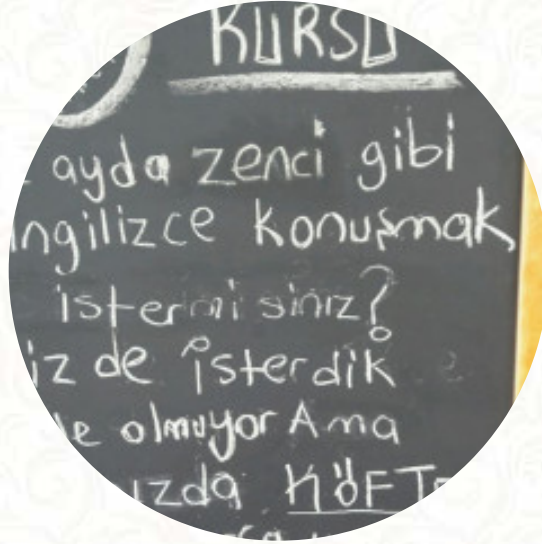 KURSU
ayda zenci gibi
ingilizce konuşmak
istermisiniz?
iz de isterdik
le olmuyor Ama
ızda KÖFT